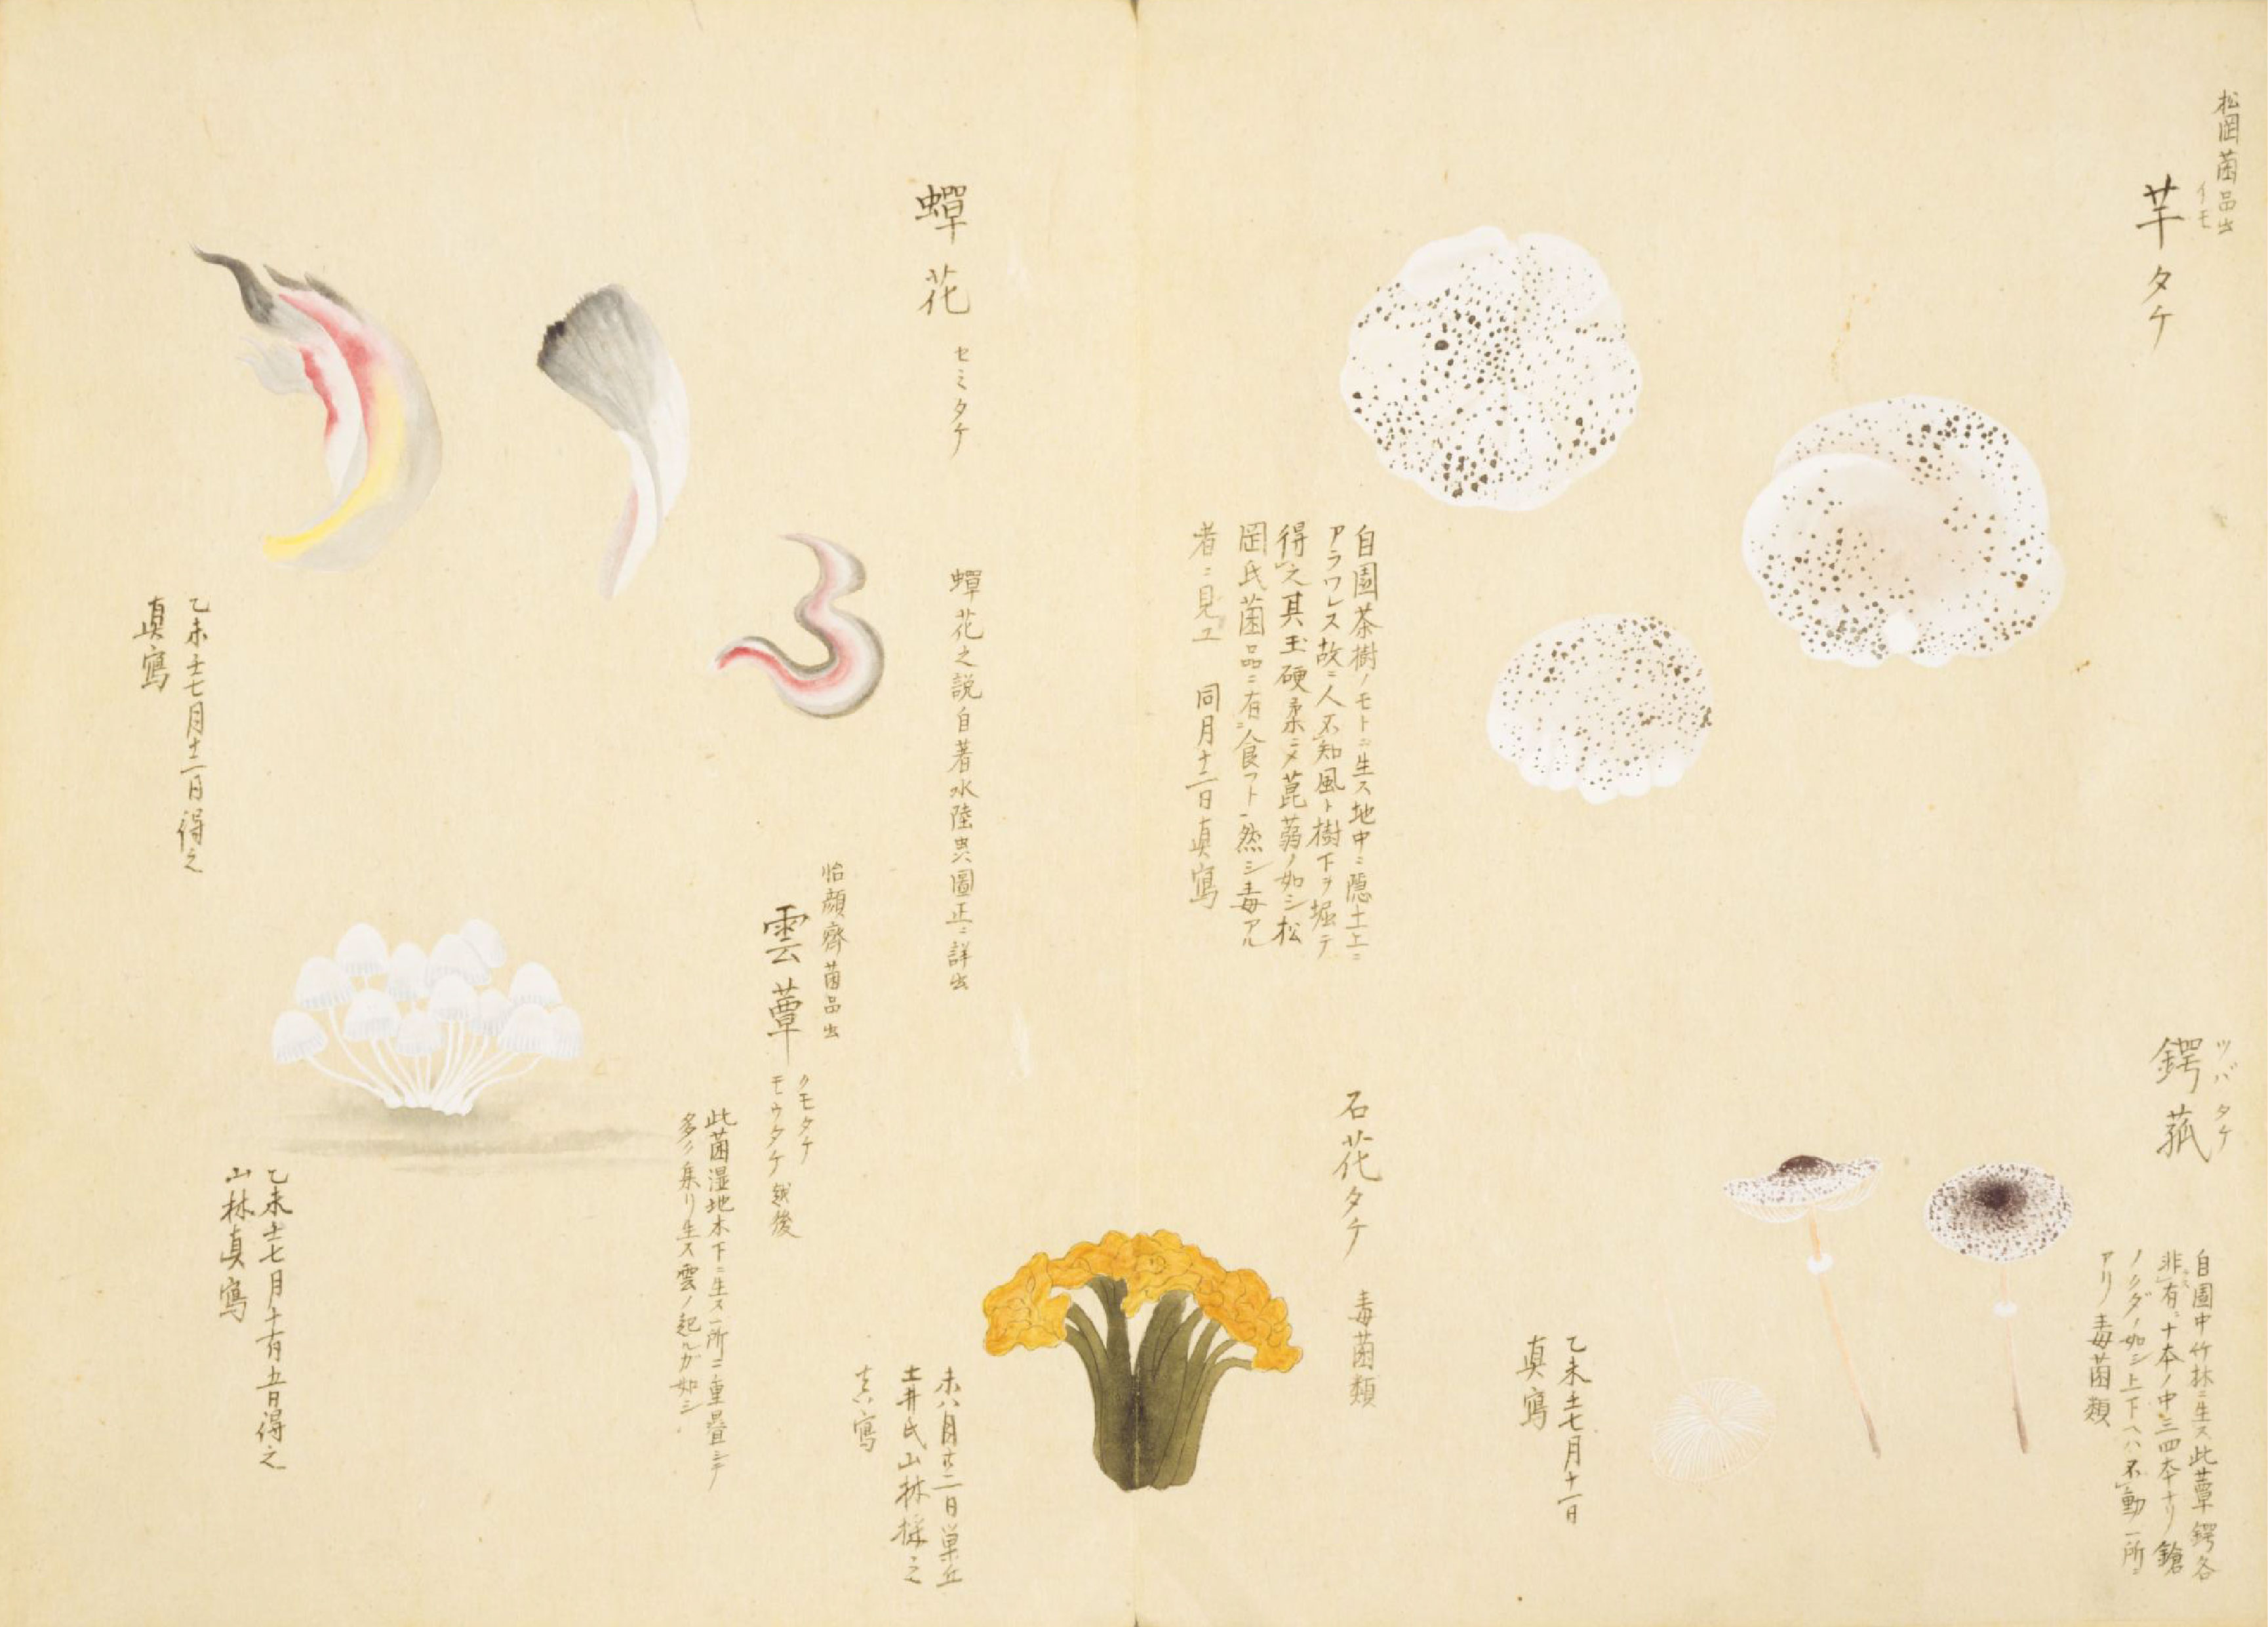 松岡菌品出
芋タケ
イモ
自園茶樹ノモトニ生ス地中ニ隠土上ニ
アラワレス故ニ人不知風ト樹下ヲ堀テ
得之其玉硬柔ニメ菎蒻ノ如シ松
岡氏菌品ニ有食フト然シ毒アル
者ニ見ユ 同月十二日真寫
ツバタケ
鍔菰
自園中竹林ニ生ス此蕈鍔各
非有十本ノ中三四本ナリ鎗
ノクダノ如シ上下ヘハ不動一所ニ
アリ毒菌類
乙未七月十一日
真寫
石花タケ
毒菌類
未八月廿二日巣丘
土井氏山林採之
真寫
蟬花 セミタケ
蟬花之説自著水陸虫圖正ニ詳出
乙未七月十二日得之
真寫
怡顔齋菌品出
雲蕈
クモタケ
モウタケ 越後
此菌湿地木下ニ生ス一所ニ重疊シテ
多ク集リ生ス雲ノ起ルガ如シ
乙未七月十有五日得之
山林真寫